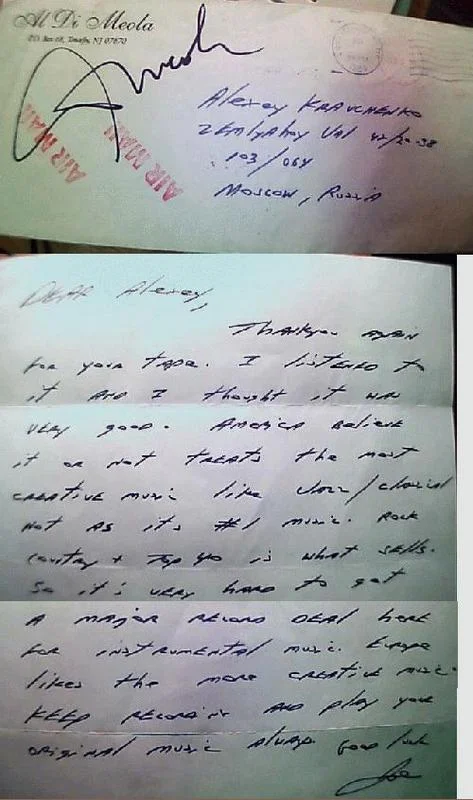 Al Di Meola
P.O. Box 68, Tenafly, NJ 07670
AIR MAIL
AIR MAIL
Alexey KRAVCHENKO
ZEMlyAnoy Val 42/20-38
103/064
Moscow, Russia
DEAR Alexey,
Thankyou AGAIN
for your TAPE. I listENED to
it AND I thought it was
VERY good. AMERICA Believe
it or not TREATS the most
CREATIVE music like JAZZ/classical
Not AS it's #1 music. Rock
Country + Top 40 is what sells.
So it's VERY hard to get
A major RECORD DEAL here
for instrumental music. Europe
likes the more CREATIVE music.
KEEP RECORDING AND play your
original music always Good luck